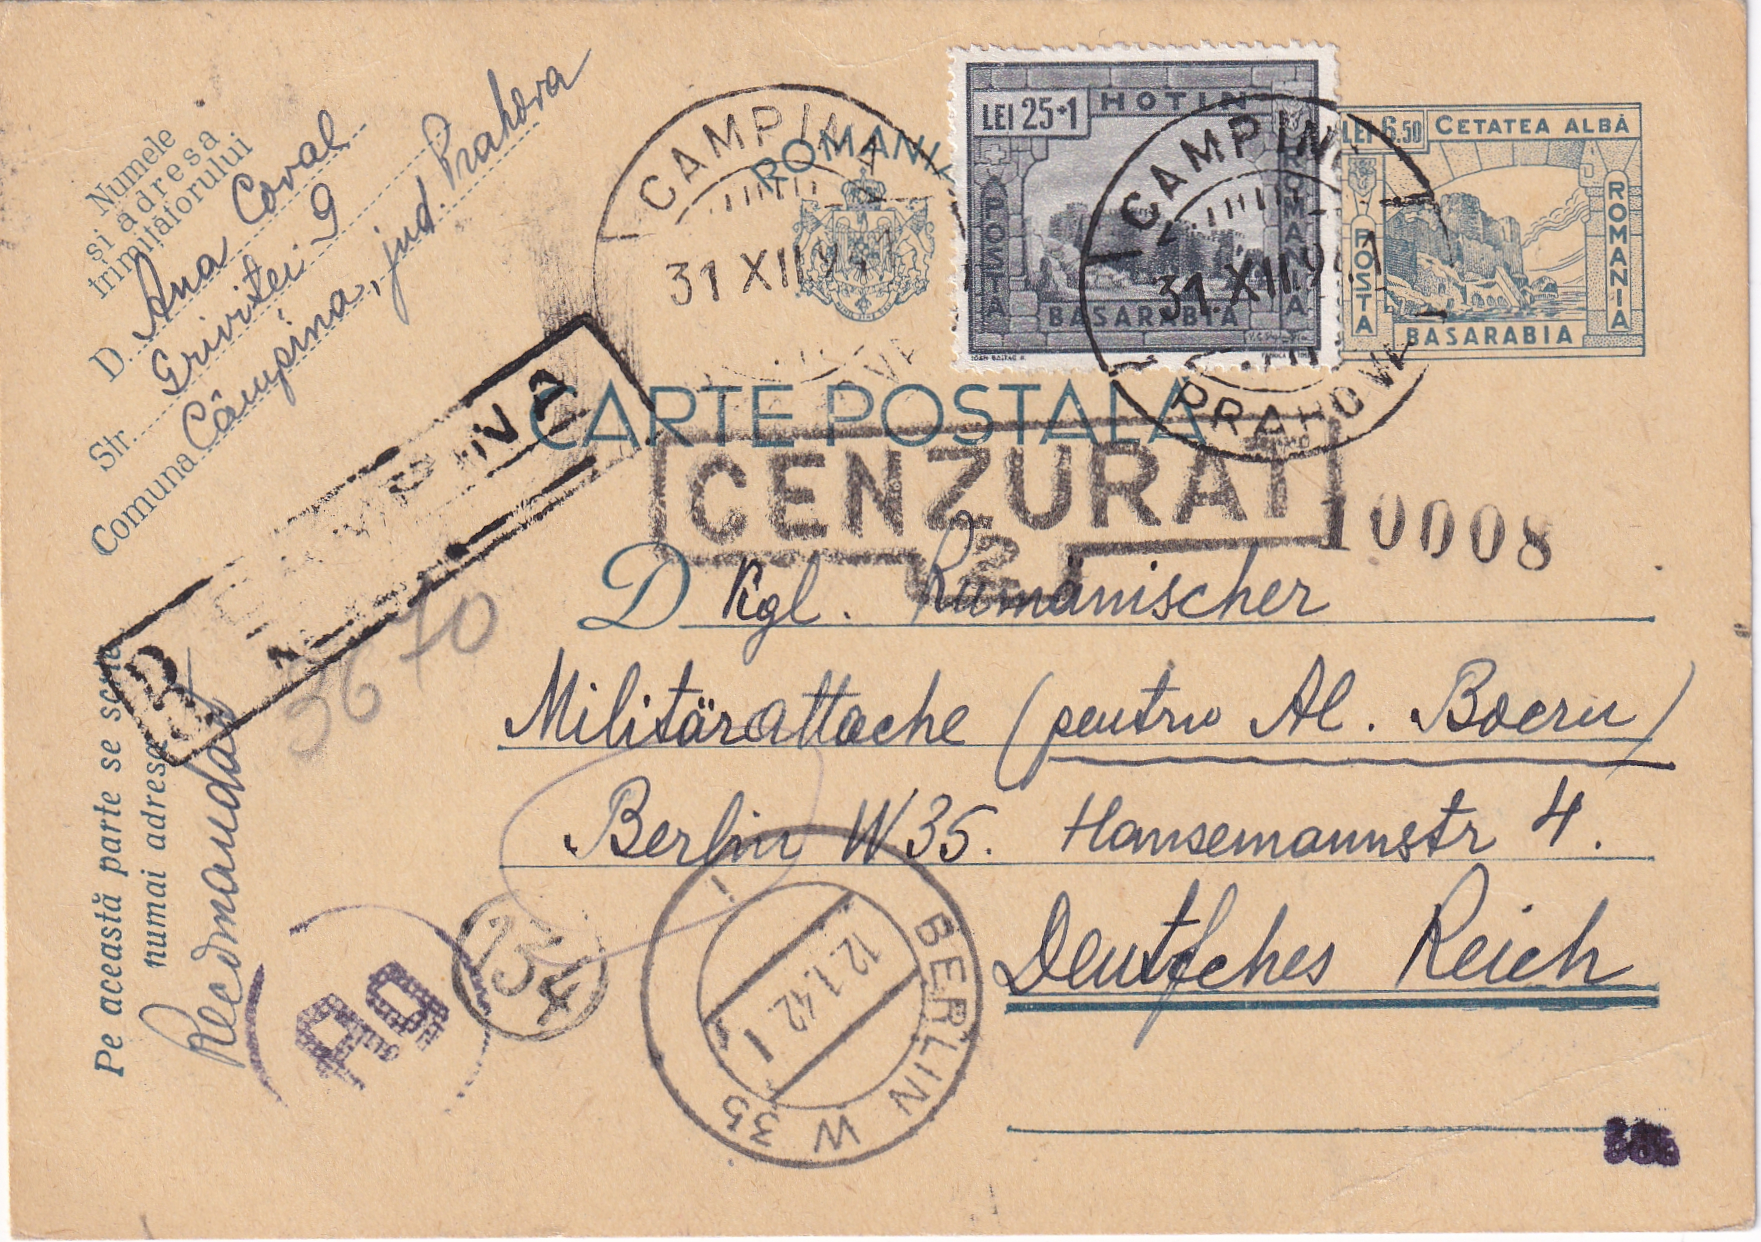 Numele
și adresa
trimițătorului
D. Ana Coval
Str. Griviței 9
Comuna Câmpina, jud. Prahova
ROMANIA
CAMPINA
31 XII 941
LEI 25+1 HOTIN
POSTA
ROMANIA
BASARABIA
CAMPINA
31 XII 941
PRAHOVA
LEI 6.50 CETATEA ALBĂ
POSTA
ROMANIA
BASARABIA
CARTE POSTALA
CENZURAT
2
10008
R CAMPINA
3670
D Kgl. Rumänischer
Militärattache (pentru Al. Boeru)
Berlin W 35. Hansemannstr 4.
Deutsches Reich
Pe această parte se scrie
numai adresa
Recomandat
134
BERLIN W 35
12.1.42